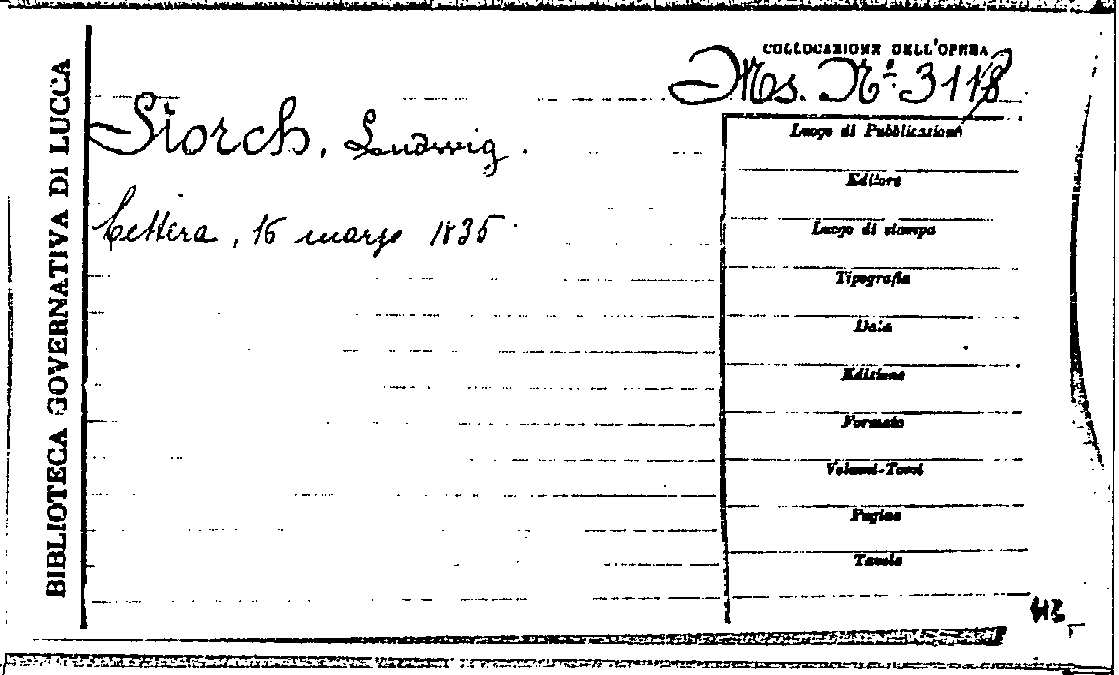 BIBLIOTECA GOVERNATIVA DI LUCCA
COLLOCAZIONE DELL'OPERA
Ms. N.º 3118
Storch, Ludwig.
Lettera, 16 marzo 1835
Luogo di Pubblicazione
Editore
Luogo di stampa
Tipografia
Data
Edizione
Formato
Volumi-Tomi
Pagine
Tavole